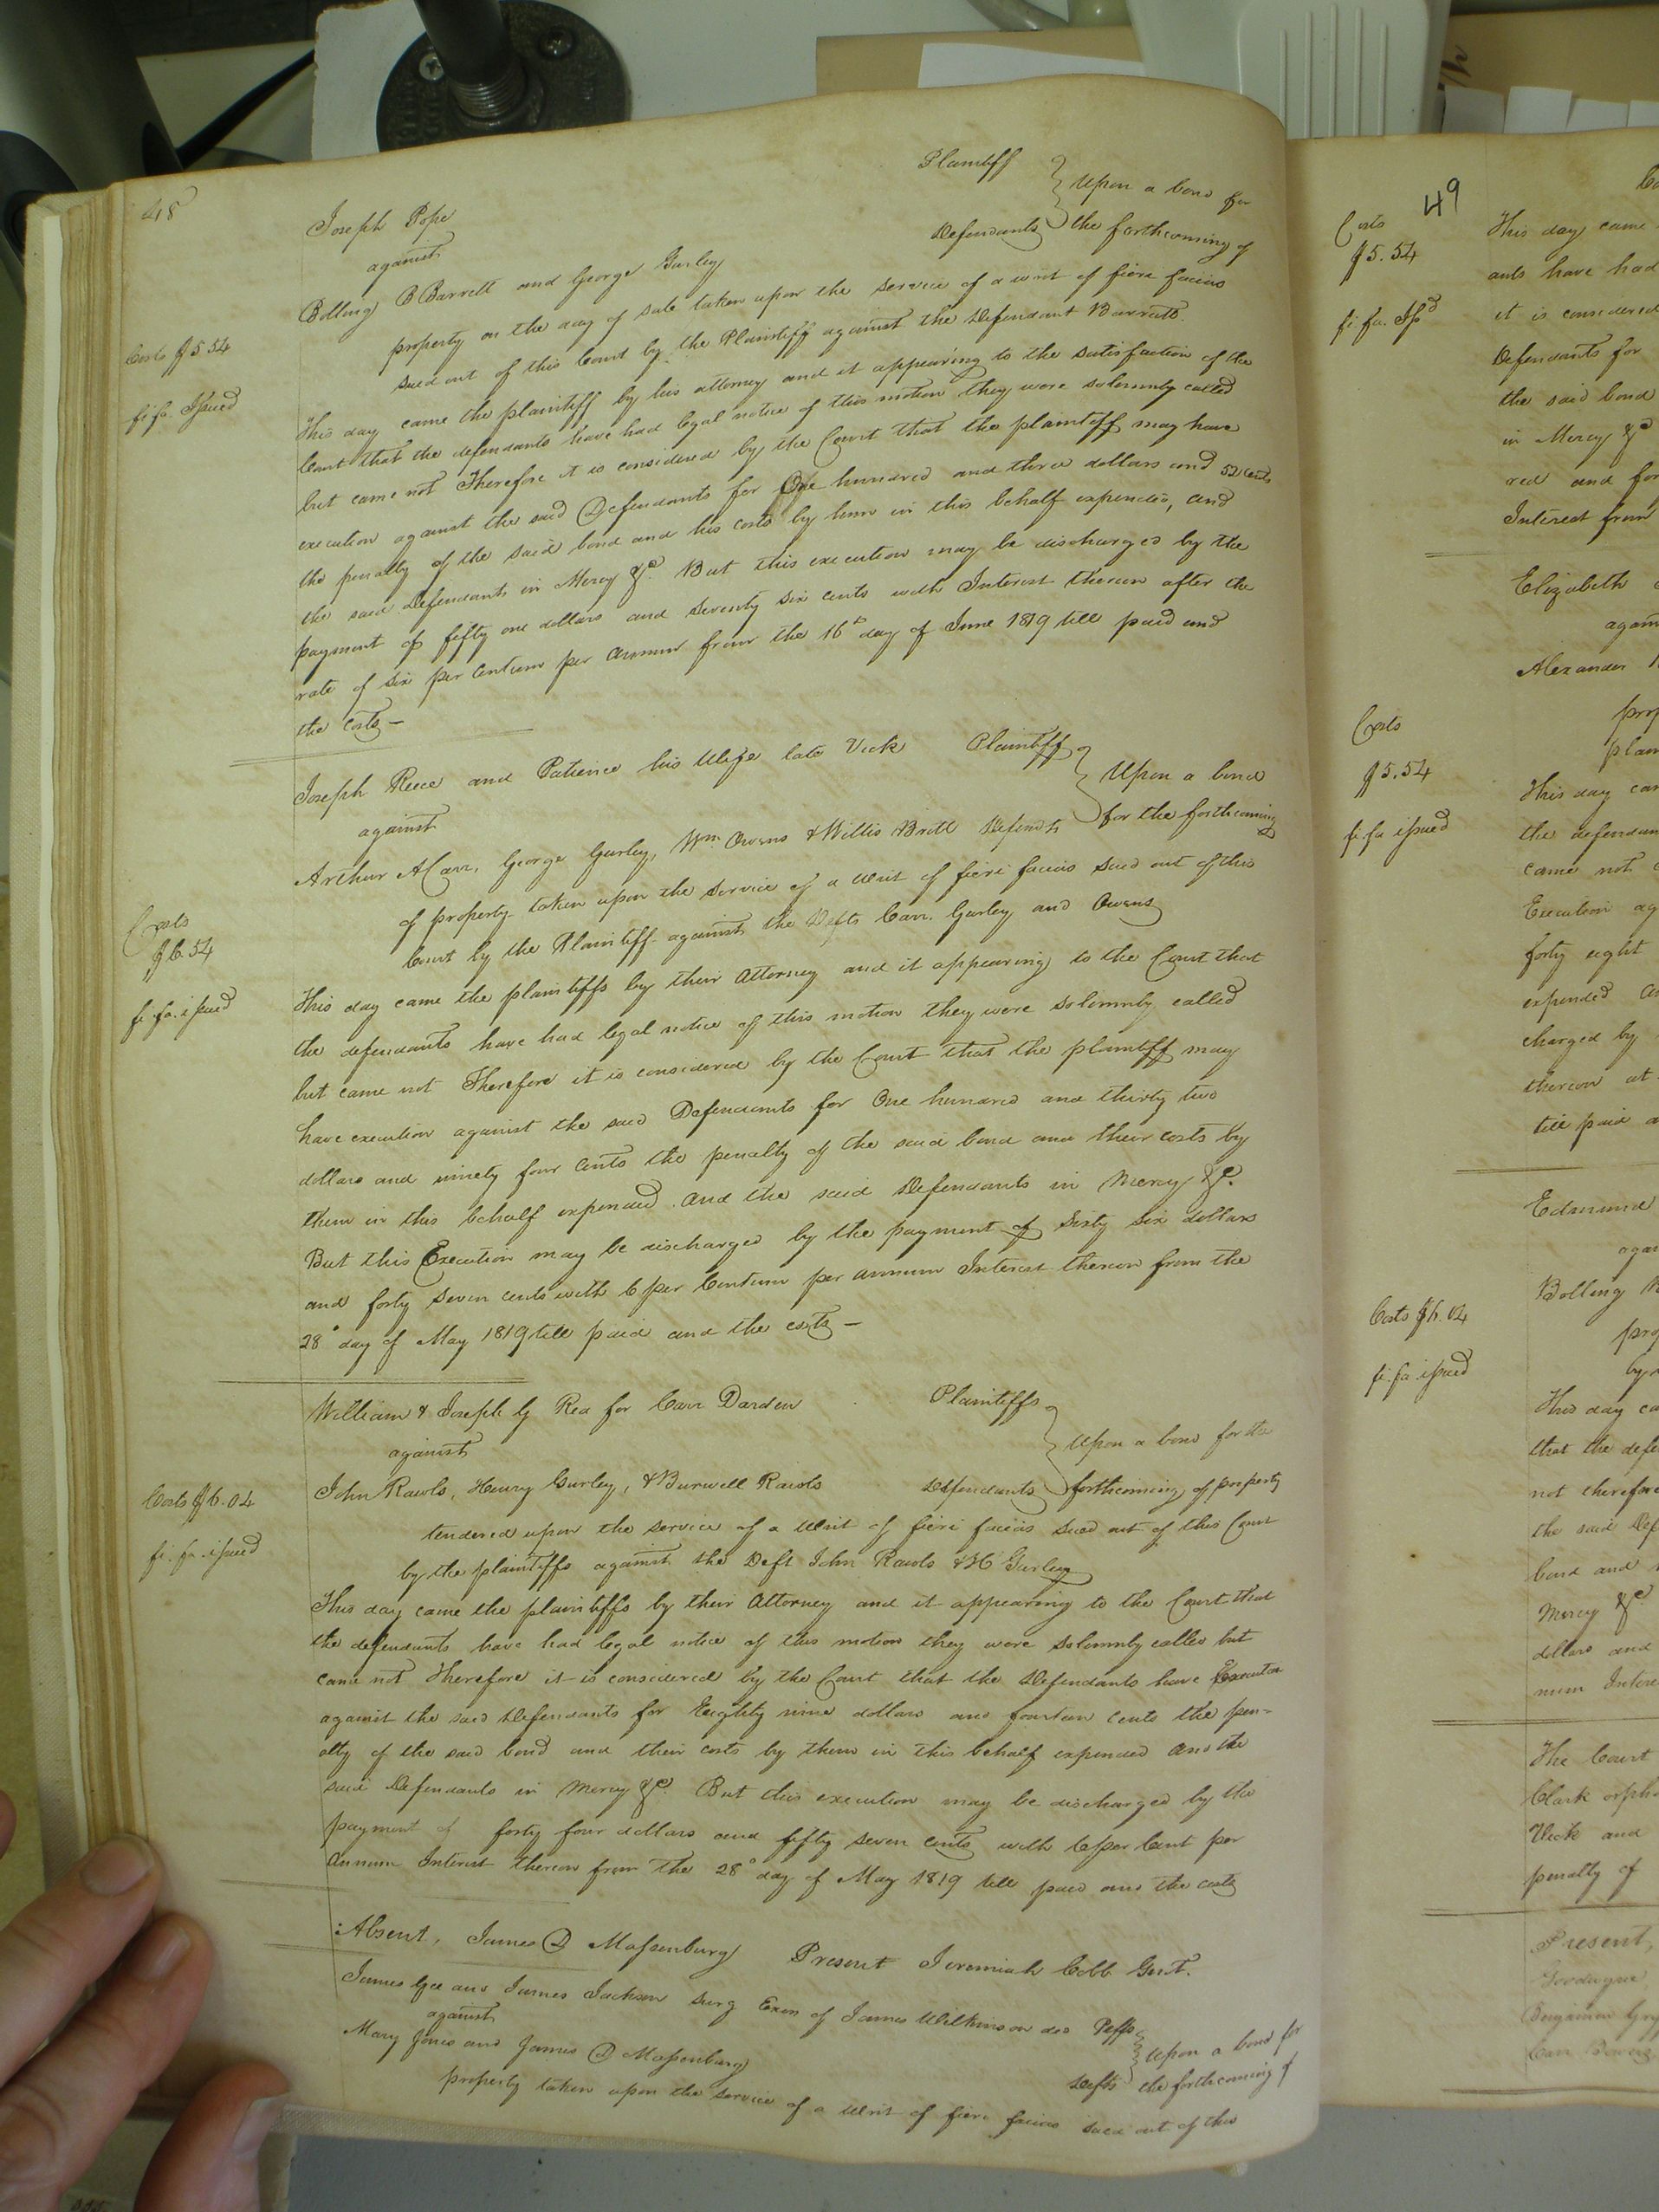 48
Joseph Pope Plaintiff
against
Bolling B Barrett and George Gurley Defendants
Upon a bond for
the forthcoming of
property on the day of sale taken upon the service of a writ of fiere facias
sued out of this Court by the Plaintiff against the Defendant Barrett.
Costs $5.54
fi. fa. Issued
This day came the plaintiff by his attorney and it appearing to the satisfaction of the
Court that the defendants have had legal notice of this motion they were solemnly called
but came not Therefore it is considered by the Court that the plaintiff may have
execution against the said Defendants for One hundred and three dollars and 52 cents
the penalty of the said bond and his costs by him in this behalf expended, and
the said Defendants in Mercy &c. But this execution may be discharged by the
payment of fifty one dollars and seventy six cents with Interest thereon after the
rate of six per centum per annum from the 16th day of June 1819 till paid and
the costs —
Joseph Reece and Patience his Wife late Vick Plaintiff
against
Arthur A Carr, George Gurley, Wm. Owens & Willis Britt Defendts
Upon a bond
for the forthcoming
of property taken upon the service of a Writ of fieri facias sued out of this
Court by the Plaintiff against the Defts Carr, Gurley and Owens
Costs
$6.54
fi. fa. issued
This day came the plaintiffs by their Attorney and it appearing to the Court that
the defendants have had legal notice of this motion they were solemnly called
but came not Therefore it is considered by the Court that the plaintiff may
have execution against the said Defendants for One hundred and thirty two
dollars and ninety four cents the penalty of the said bond and their costs by
them in this behalf expended and the said Defendants in Mercy &c.
But this Execution may be discharged by the payment of Sixty Six dollars
and forty seven cents with 6 per Centum per annum Interest thereon from the
28° day of May 1819 till paid and the costs —
William & Joseph G Rea for Carr Darden Plaintiffs
against
John Rawls, Henry Gurley, & Burwell Rawls Defendants
Upon a bond for the
forthcoming of property
tendered upon the service of a Writ of fieri facias sued out of this Court
by the plaintiffs against the Deft John Rawls & H Gurley
Costs $6.04
fi. fa. issued
This day came the plaintiffs by their Attorney and it appearing to the Court that
the defendants have had legal notice of this motion they were solemnly called but
came not Therefore it is considered by the Court that the Defendants have Execution
against the said Defendants for Eighty nine dollars and fourteen cents the pen-
alty of the said bond and their costs by them in this behalf expended and the
said Defendants in Mercy &c. But this execution may be discharged by the
payment of forty four dollars and fifty seven cents with 6 per Cent per
Annum Interest thereon from the 28° day of May 1819 till paid and the costs
Absent, James D Massenburg Present Jeremiah Cobb Gent.
James Gee and James Jackson surg Exors of James Wilkinson dec Peffs
against
Mary Jones and James D Massenburg Defts
Upon a bond for
the forthcoming of
property taken upon the service of a Writ of fieri facias sued out of this
49
Costs
$5.54
fi. fa. Issd
This day came
ants have had
it is considered
Defendants for
the said bond
in Mercy &c
red and for
Interest from
Elizabeth
again
Alexander
prop
plain
Costs
$5.54
fi. fa issued
This day cam
the defendan
came not
Execution ag
forty eight
expended an
charged by
thereon at
till paid a
Edmund
again
Bolling
prop
by
Costs $6.04
fi. fa issued
This day ca
that the defe
not therefore
the said Def
bond and
Mercy &c
dollars and
num Intere
The Court
Clark orph
Vick and
penalty of
Present,